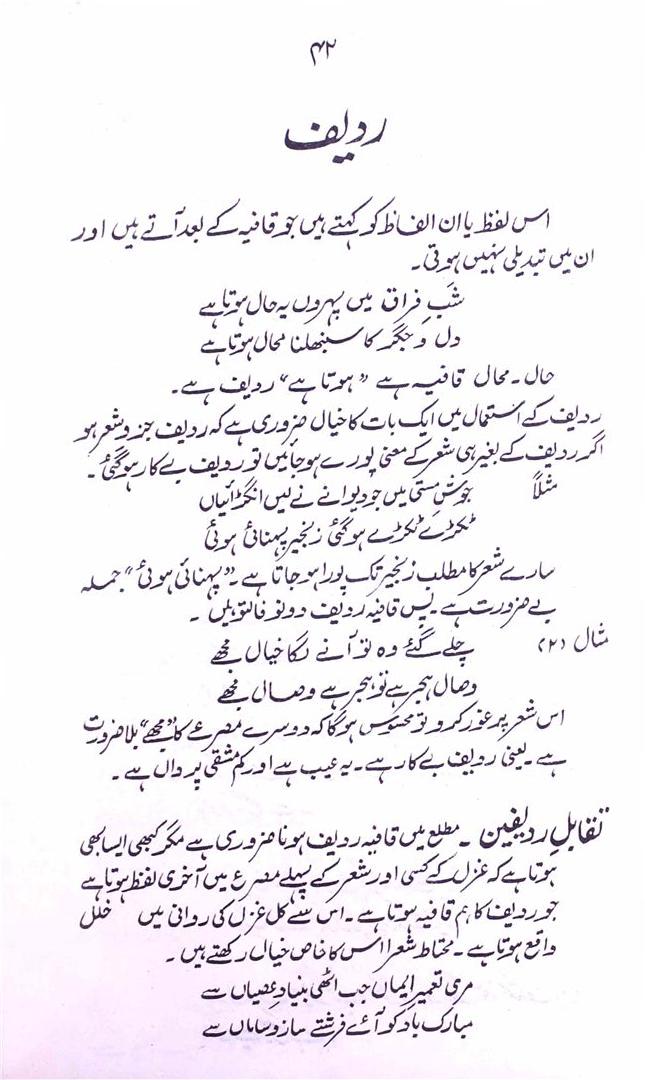 ۴۲
ردیف
اس لفظ یا ان الفاظ کو کہتے ہیں جو قافیہ کے بعد آتے ہیں اور
ان میں تبدیلی نہیں ہوتی۔
شبِ فراق میں پہروں یہ حال ہوتا ہے
دل و جگر کا سنبھلنا محال ہوتا ہے
حال۔ محال قافیہ ہے "ہوتا ہے" ردیف ہے۔
ردیف کے استعمال میں ایک بات کا خیال ضروری ہے کہ ردیف جزوِ شعر ہو
اگر ردیف کے بغیر ہی شعر کے معنی پورے ہو جائیں تو ردیف بے کار ہو گئی۔
مثلاً جوشِ مستی میں جو دیوانے نے لیں انگڑائیاں
ٹکڑے ٹکڑے ہو گئی زنجیر پہنائی ہوئی
سارے شعر کا مطلب زنجیر تک پورا ہو جاتا ہے۔ "پہنائی ہوئی" جملہ
بے ضرورت ہے۔ پس قافیہ ردیف دونو فالتو ہیں۔
مثال (۲) چلے گئے وہ تو آنے لگا خیال مجھے
وصال ہجر ہے تو ہجر ہے وصال مجھے
اس شعر پر غور کرو تو محسوس ہو گا کہ دوسرے مصرعے کا "مجھے" بلا ضرورت
ہے۔ یعنی ردیف بے کار ہے۔ یہ عیب ہے اور کم مشقی پر دال ہے۔
تقابلِ ردیفین ۔ مطلع میں قافیہ ردیف ہونا ضروری ہے مگر کبھی ایسا بھی
ہوتا ہے کہ غزل کے کسی اور شعر کے پہلے مصرع میں آخری لفظ ہوتا ہے
جو ردیف کا ہم قافیہ ہوتا ہے۔ اس سے کل غزل کی روانی میں خلل
واقع ہوتا ہے۔ محتاط شعرا اس کا خاص خیال رکھتے ہیں۔
مری تعمیرِ ایماں جب اٹھی بنیادِ عصیاں سے
مبارک باد کو آئے فرشتے ساز و ساماں سے